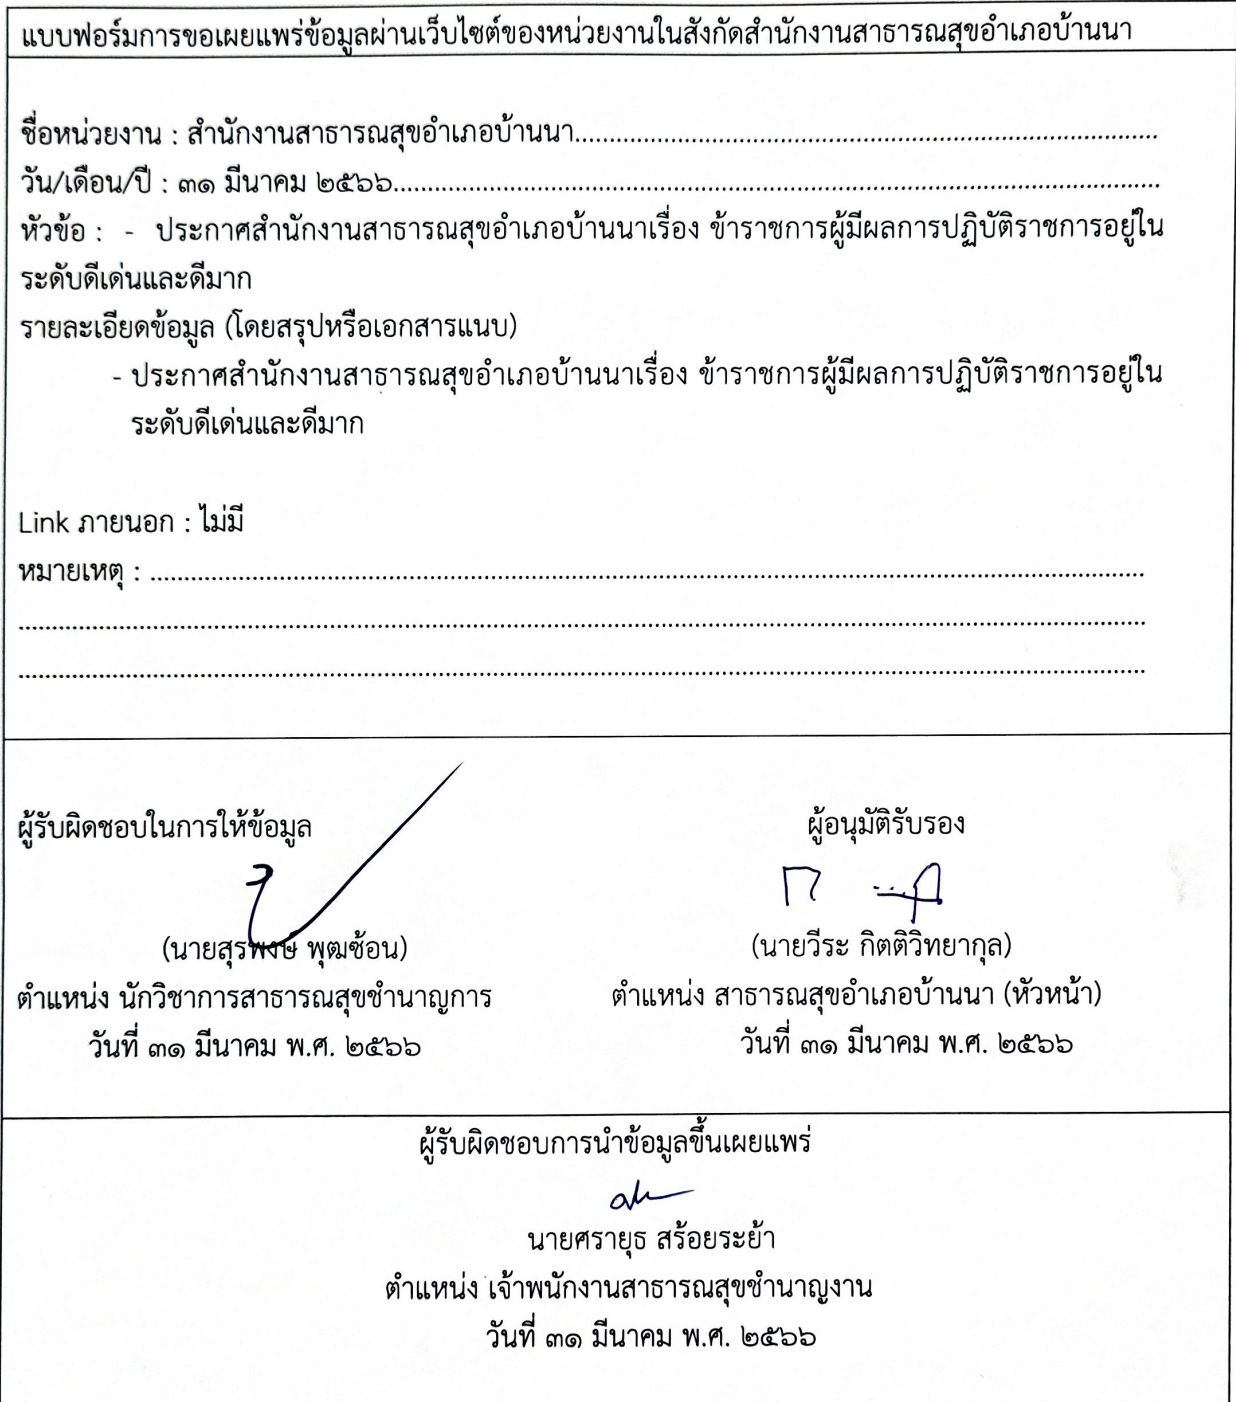 แบบฟอร์มการขอเผยแพร่ข้อมูลผ่านเว็บไซต์ของหน่วยงานในสังกัดสำนักงานสาธารณสุขอำเภอบ้านนา
ชื่อหน่วยงาน : สำนักงานสาธารณสุขอำเภอบ้านนา..........................................................................................
วัน/เดือน/ปี : ๓๑ มีนาคม ๒๕๖๖......................................................................................................................
หัวข้อ : - ประกาศสำนักงานสาธารณสุขอำเภอบ้านนาเรื่อง ข้าราชการผู้มีผลการปฏิบัติราชการอยู่ใน
ระดับดีเด่นและดีมาก
รายละเอียดข้อมูล (โดยสรุปหรือเอกสารแนบ)
- ประกาศสำนักงานสาธารณสุขอำเภอบ้านนาเรื่อง ข้าราชการผู้มีผลการปฏิบัติราชการอยู่ใน
ระดับดีเด่นและดีมาก
Link ภายนอก : ไม่มี
หมายเหตุ : ..........................................................................................................................................................
..............................................................................................................................................................................
..............................................................................................................................................................................
ผู้รับผิดชอบในการให้ข้อมูล
(นายสุรพงษ์ พุฒซ้อน)
ตำแหน่ง นักวิชาการสาธารณสุขชำนาญการ
วันที่ ๓๑ มีนาคม พ.ศ. ๒๕๖๖
ผู้อนุมัติรับรอง
(นายวีระ กิตติวิทยากุล)
ตำแหน่ง สาธารณสุขอำเภอบ้านนา (หัวหน้า)
วันที่ ๓๑ มีนาคม พ.ศ. ๒๕๖๖
ผู้รับผิดชอบการนำข้อมูลขึ้นเผยแพร่
นายศรายุธ สร้อยระย้า
ตำแหน่ง เจ้าพนักงานสาธารณสุขชำนาญงาน
วันที่ ๓๑ มีนาคม พ.ศ. ๒๕๖๖